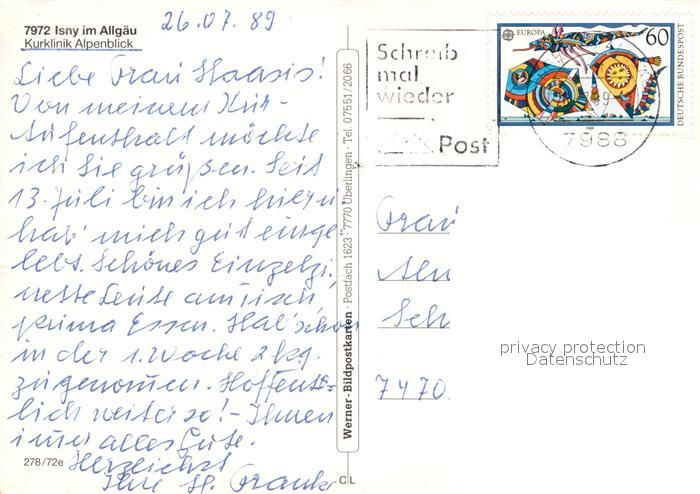 26.07.89
7972 Isny im Allgäu
Kurklinik Alpenblick
Liebe Frau Haasis!
Von meinem Kur-
Aufenthalt möchte
ich Sie grüßen. Seit
13. Juli bin ich hier u.
hab' mich gut einge-
lebt. Schönes Einzelzi.,
nette Leute am Tisch,
prima Essen. Hab' schon
in der 1. Woche 2 kg.
zugenommen. Hoffent-
lich weiter so! - Ihnen
immer alles Gute.
Herzlichst
Ihre H.
278/72e
Werner-Bildpostkarten · Postfach 1623 · 7770 Überlingen · Tel. 07551/2066
C L
Schreib
mal
wieder
Post
EUROPA
60
DEUTSCHE BUNDESPOST
1989
7988
Frau
Sch
7470
privacy protection
Datenschutz